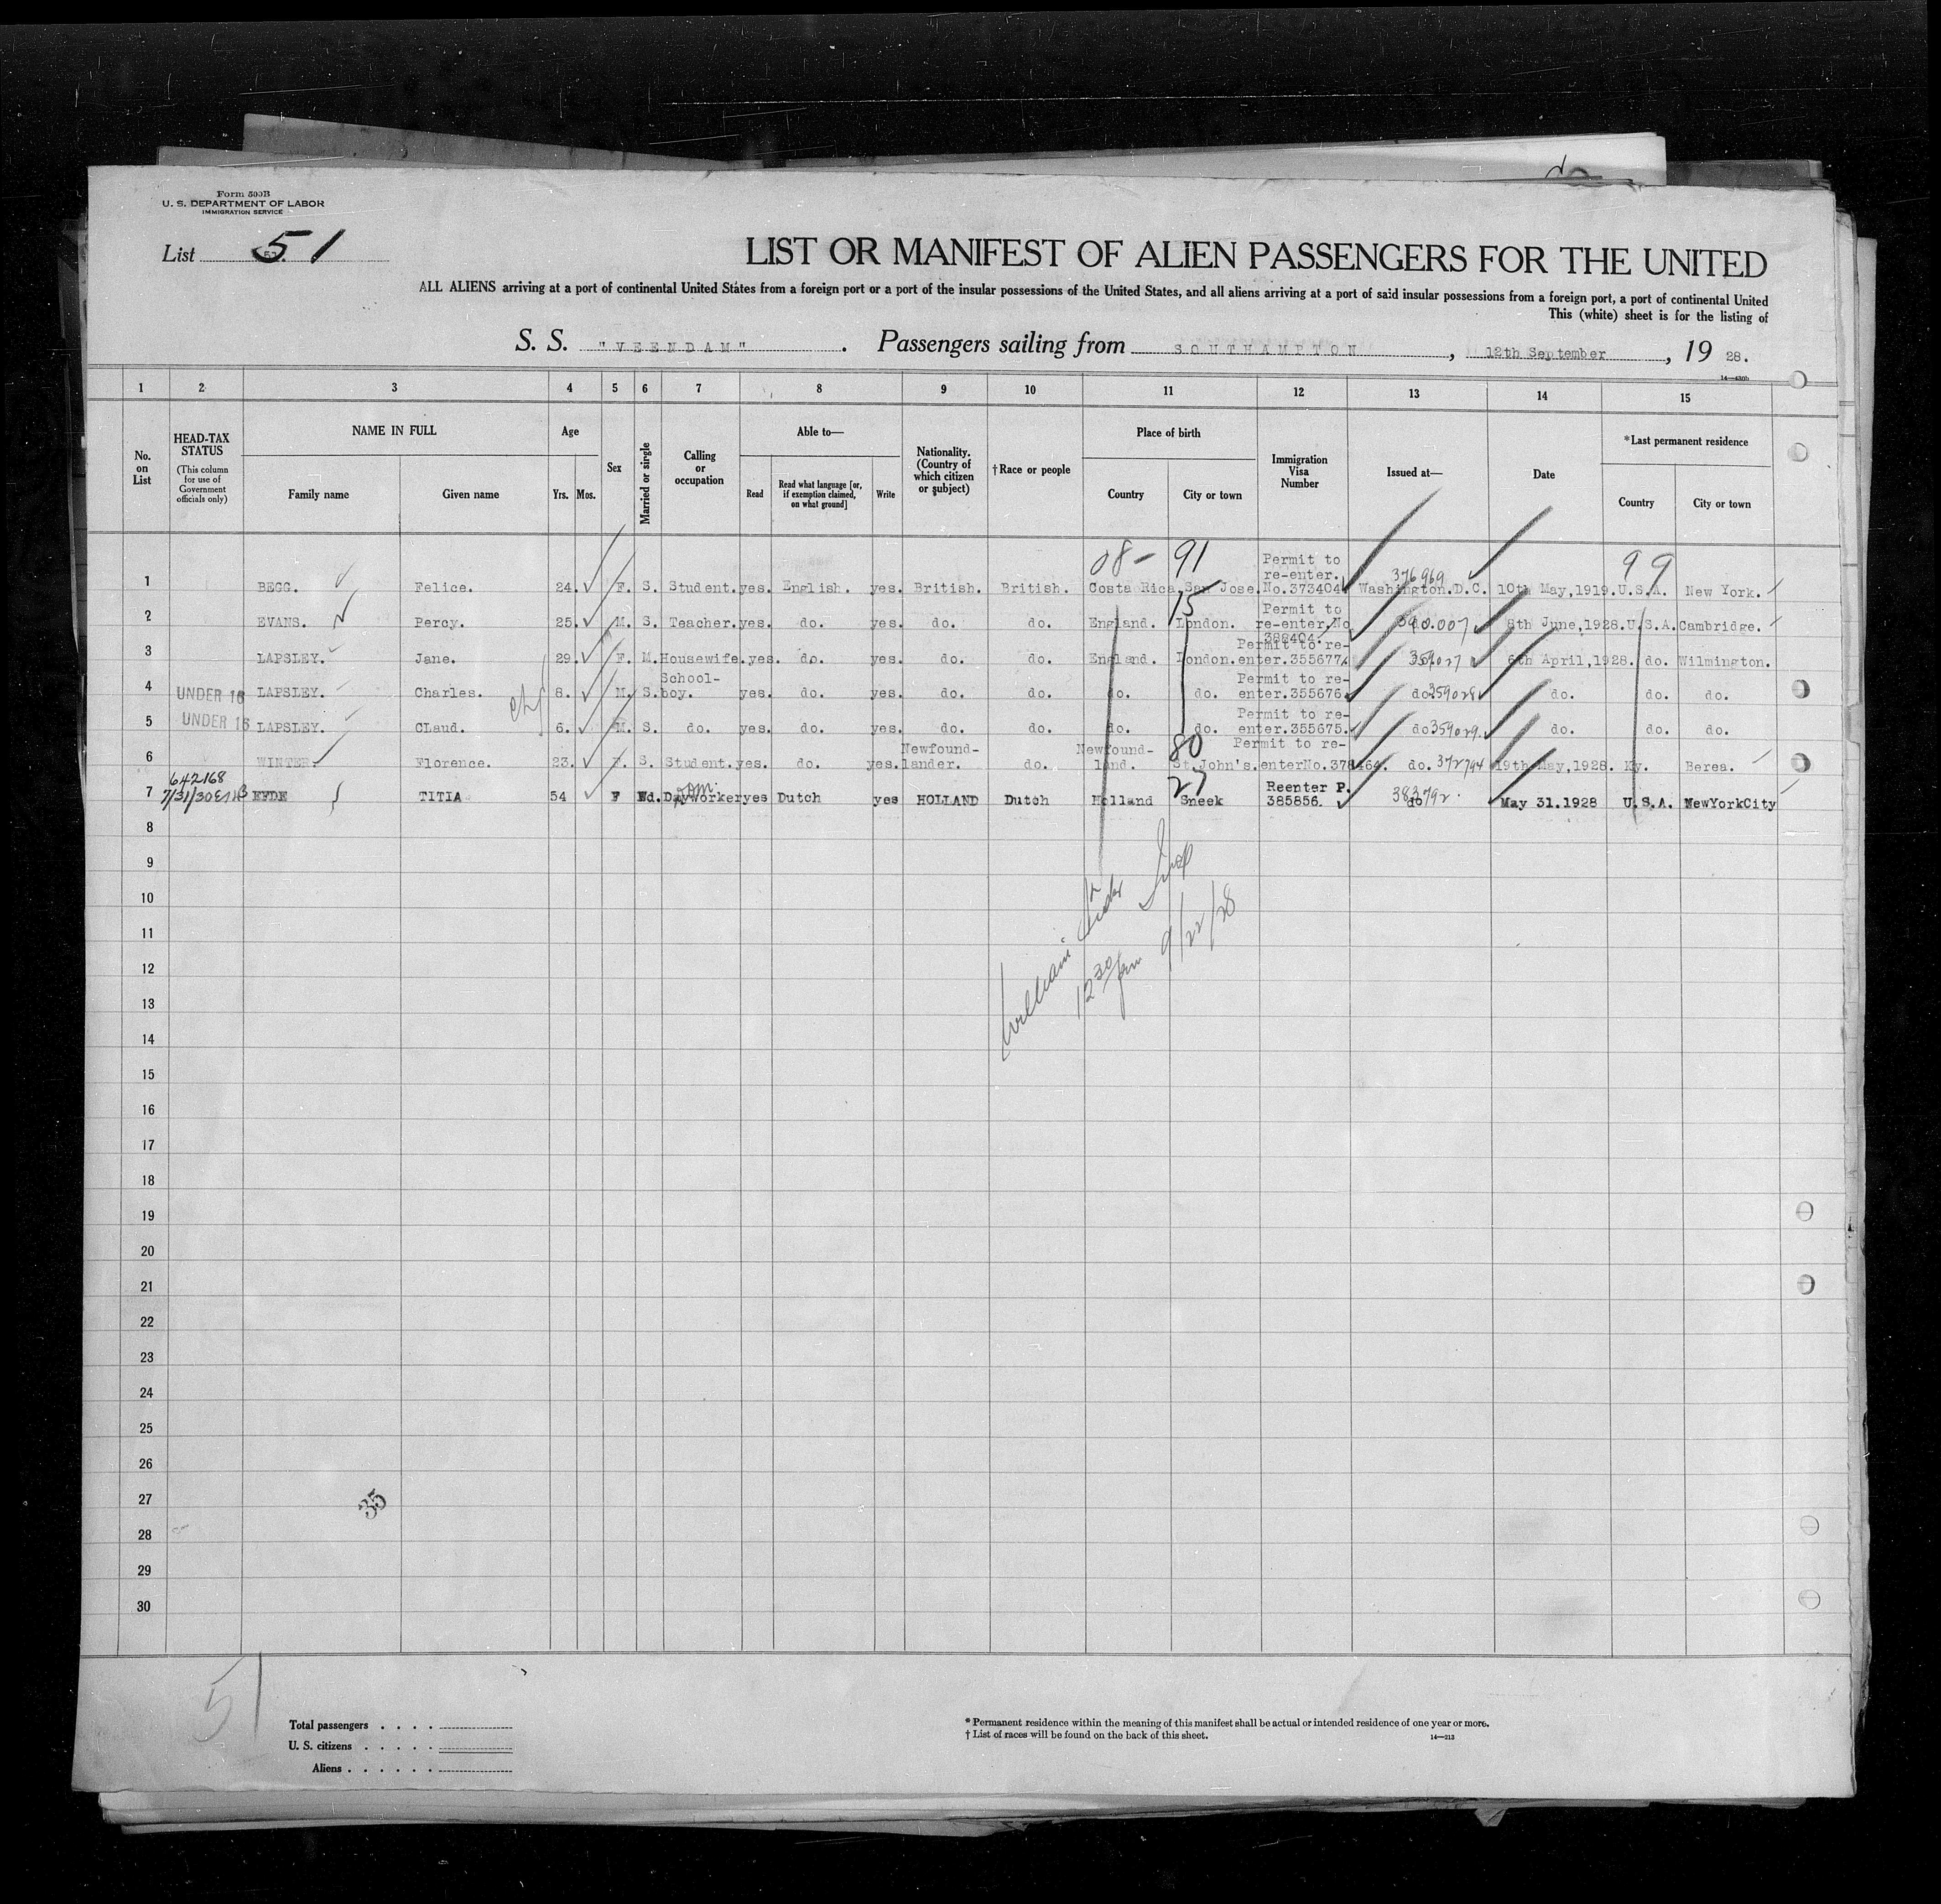 Form 500B
U. S. DEPARTMENT OF LABOR
IMMIGRATION SERVICE
List 51
LIST OR MANIFEST OF ALIEN PASSENGERS FOR THE UNITED
ALL ALIENS arriving at a port of continental United States from a foreign port or a port of the insular possessions of the United States, and all aliens arriving at a port of said insular possessions from a foreign port, a port of continental United
This (white) sheet is for the listing of
S. S. "VEENDAM". Passengers sailing from SOUTHAMPTON, 12th September, 19 28.
1 2 3 4 5 6 7 8 9 10 11 12 13 14 15
No. on List
HEAD-TAX STATUS
(This column for use of Government officials only)
NAME IN FULL
Family name Given name
Age
Yrs. Mos.
Sex
Married or single
Calling or occupation
Able to—
Read
Read what language [or, if exemption claimed, on what ground]
Write
Nationality. (Country of which citizen or subject)
†Race or people
Place of birth
Country City or town
Immigration Visa Number
Issued at—
Date
*Last permanent residence
Country City or town
08- 91 99
Permit to
re-enter. 376969
1 BEGG. Felice. 24. F. S. Student. yes. English. yes. British. British. Costa Rica. San Jose. No.373404 Washington.D.C. 10th May,1919. U.S.A. New York.
15 Permit to
2 EVANS. Percy. 25. M. S. Teacher. yes. do. yes. do. do. England. London. re-enter.No 8th June,1928. U.S.A. Cambridge.
388404.
Permit to re-
3 LAPSLEY. Jane. 29. F. M. Housewife. yes. do. yes. do. do. England. London. enter.355677. 359027 6th April,1928. do. Wilmington.
School- Permit to re-
4 UNDER 16 LAPSLEY. Charles. 8. M. S. boy. yes. do. yes. do. do. do. do. enter.355676. do. 359028 do. do. do.
Permit to re-
5 UNDER 16 LAPSLEY. CLaud. 6. M. S. do. yes. do. yes. do. do. do. do. enter.355675. do. 359029. do. do. do.
Newfound- Newfound- 80 Permit to re-
6 WINTER. Florence. 23. F. S. Student. yes. do. yes. lander. do. land. St.John's. enterNo.378464. do. 372794 19th May,1928. Ky. Berea.
642168 27 Reenter P.
7 7/31/30 TITIA 54 F Wd. Dayworker yes Dutch yes HOLLAND Dutch Holland Sneek 385856. do 383792. May 31.1928 U.S.A. NewYorkCity
8
9
10
11
12
William
12 30 pm 9/22/28
13
14
15
16
17
18
19
20
21
22
23
24
25
26
27
35
28
29
30
51
Total passengers . . . .
U. S. citizens . . . . .
Aliens . . . . . .
* Permanent residence within the meaning of this manifest shall be actual or intended residence of one year or more.
† List of races will be found on the back of this sheet.
14—213